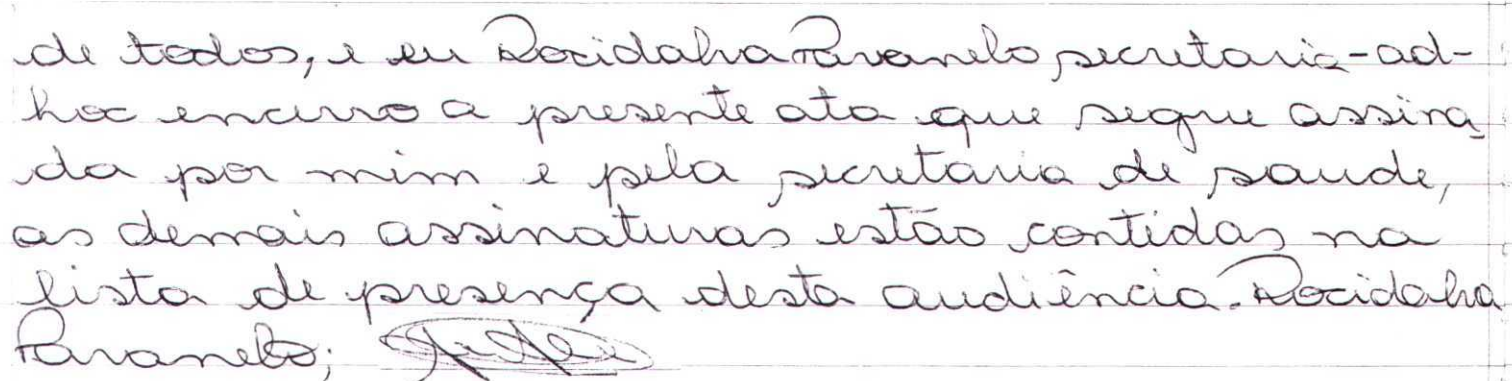 de todos, e eu Rocidalva Pavanelo secretaria-ad-
hoc encerro a presente ata que segue assina
da por mim e pela secretaria de saude,
as demais assinaturas estão contidas na
lista de presença desta audiência. Rocidalva
Pavanelo;